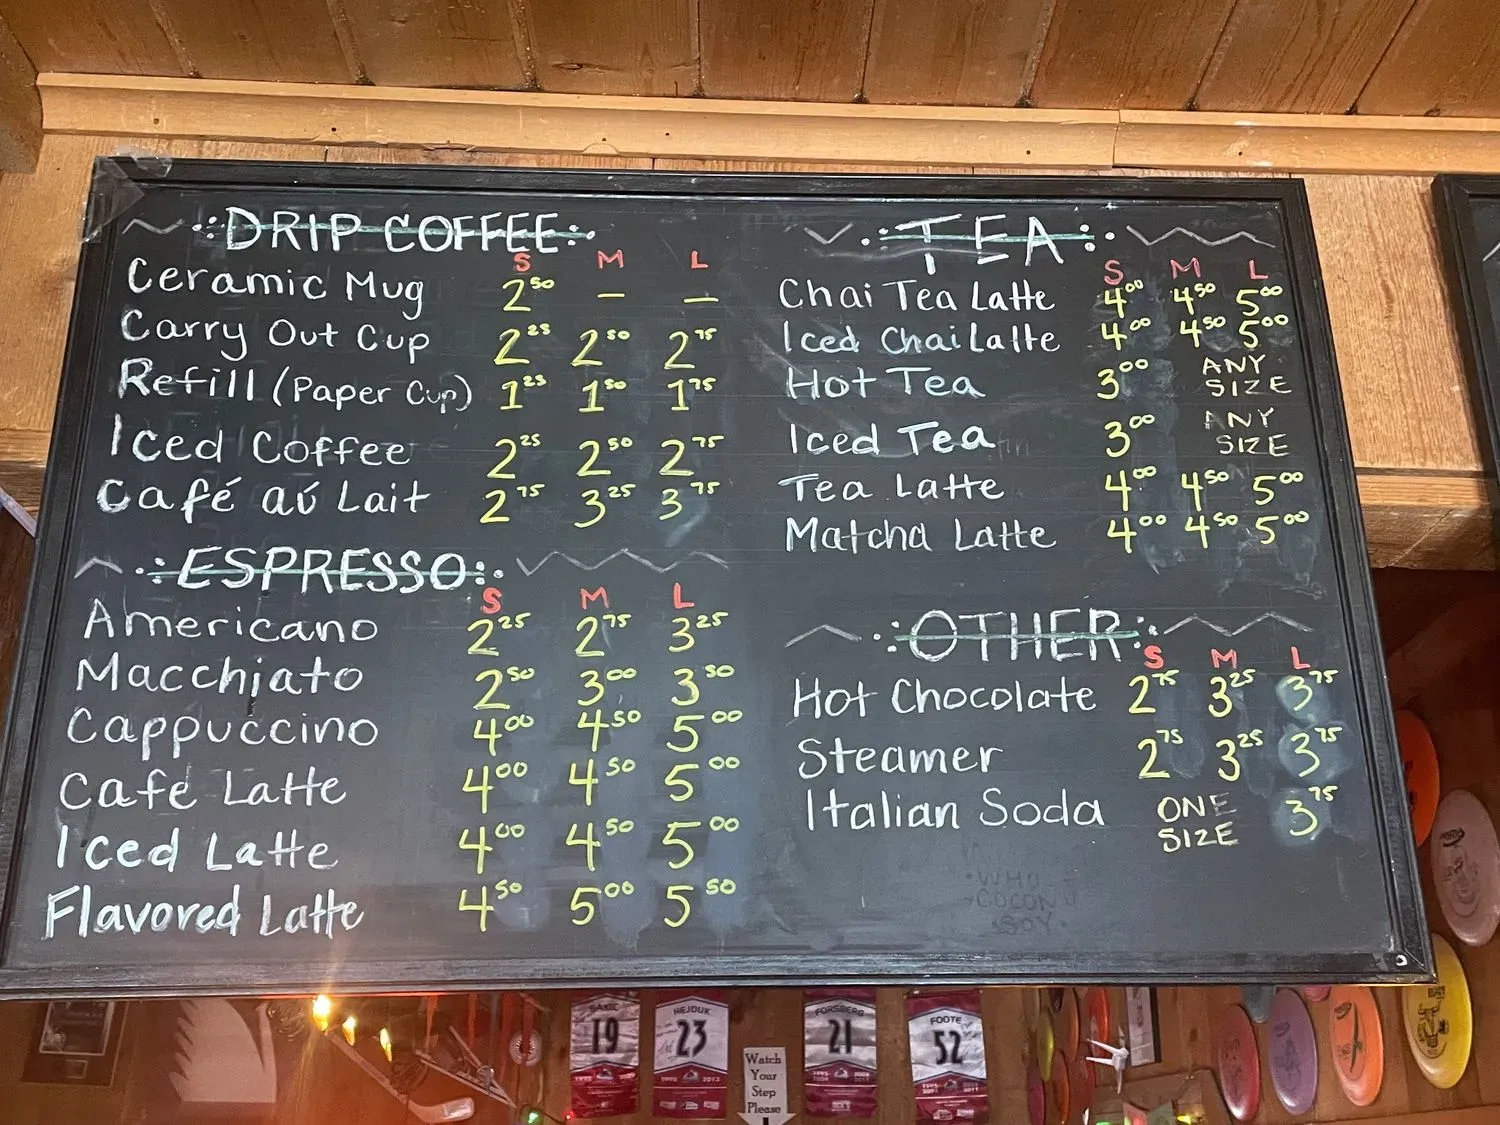 DRIP COFFEE
S M L
Ceramic Mug 2⁵⁰ — —
Carry Out Cup 2²⁵ 2⁵⁰ 2⁷⁵
Refill (Paper Cup) 1²⁵ 1⁵⁰ 1⁷⁵
Iced Coffee 2²⁵ 2⁵⁰ 2⁷⁵
Café aú Lait 2⁷⁵ 3²⁵ 3⁷⁵
ESPRESSO
S M L
Americano 2²⁵ 2⁷⁵ 3²⁵
Macchiato 2⁵⁰ 3⁰⁰ 3⁵⁰
Cappuccino 4⁰⁰ 4⁵⁰ 5⁰⁰
Café Latte 4⁰⁰ 4⁵⁰ 5⁰⁰
Iced Latte 4⁰⁰ 4⁵⁰ 5⁰⁰
Flavored Latte 4⁵⁰ 5⁰⁰ 5⁵⁰
TEA
S M L
Chai Tea Latte 4⁰⁰ 4⁵⁰ 5⁰⁰
Iced Chai Latte 4⁰⁰ 4⁵⁰ 5⁰⁰
Hot Tea 3⁰⁰ ANY
SIZE
Iced Tea 3⁰⁰ ANY
SIZE
Tea Latte 4⁰⁰ 4⁵⁰ 5⁰⁰
Matcha Latte 4⁰⁰ 4⁵⁰ 5⁰⁰
OTHER
S M L
Hot Chocolate 2⁷⁵ 3²⁵ 3⁷⁵
Steamer 2⁷⁵ 3²⁵ 3⁷⁵
Italian Soda ONE 3⁷⁵
SIZE
SOY
SAKIC
19
HEJDUK
23
FORSBERG
21
FOOTE
52
Watch
Your
Step
Please